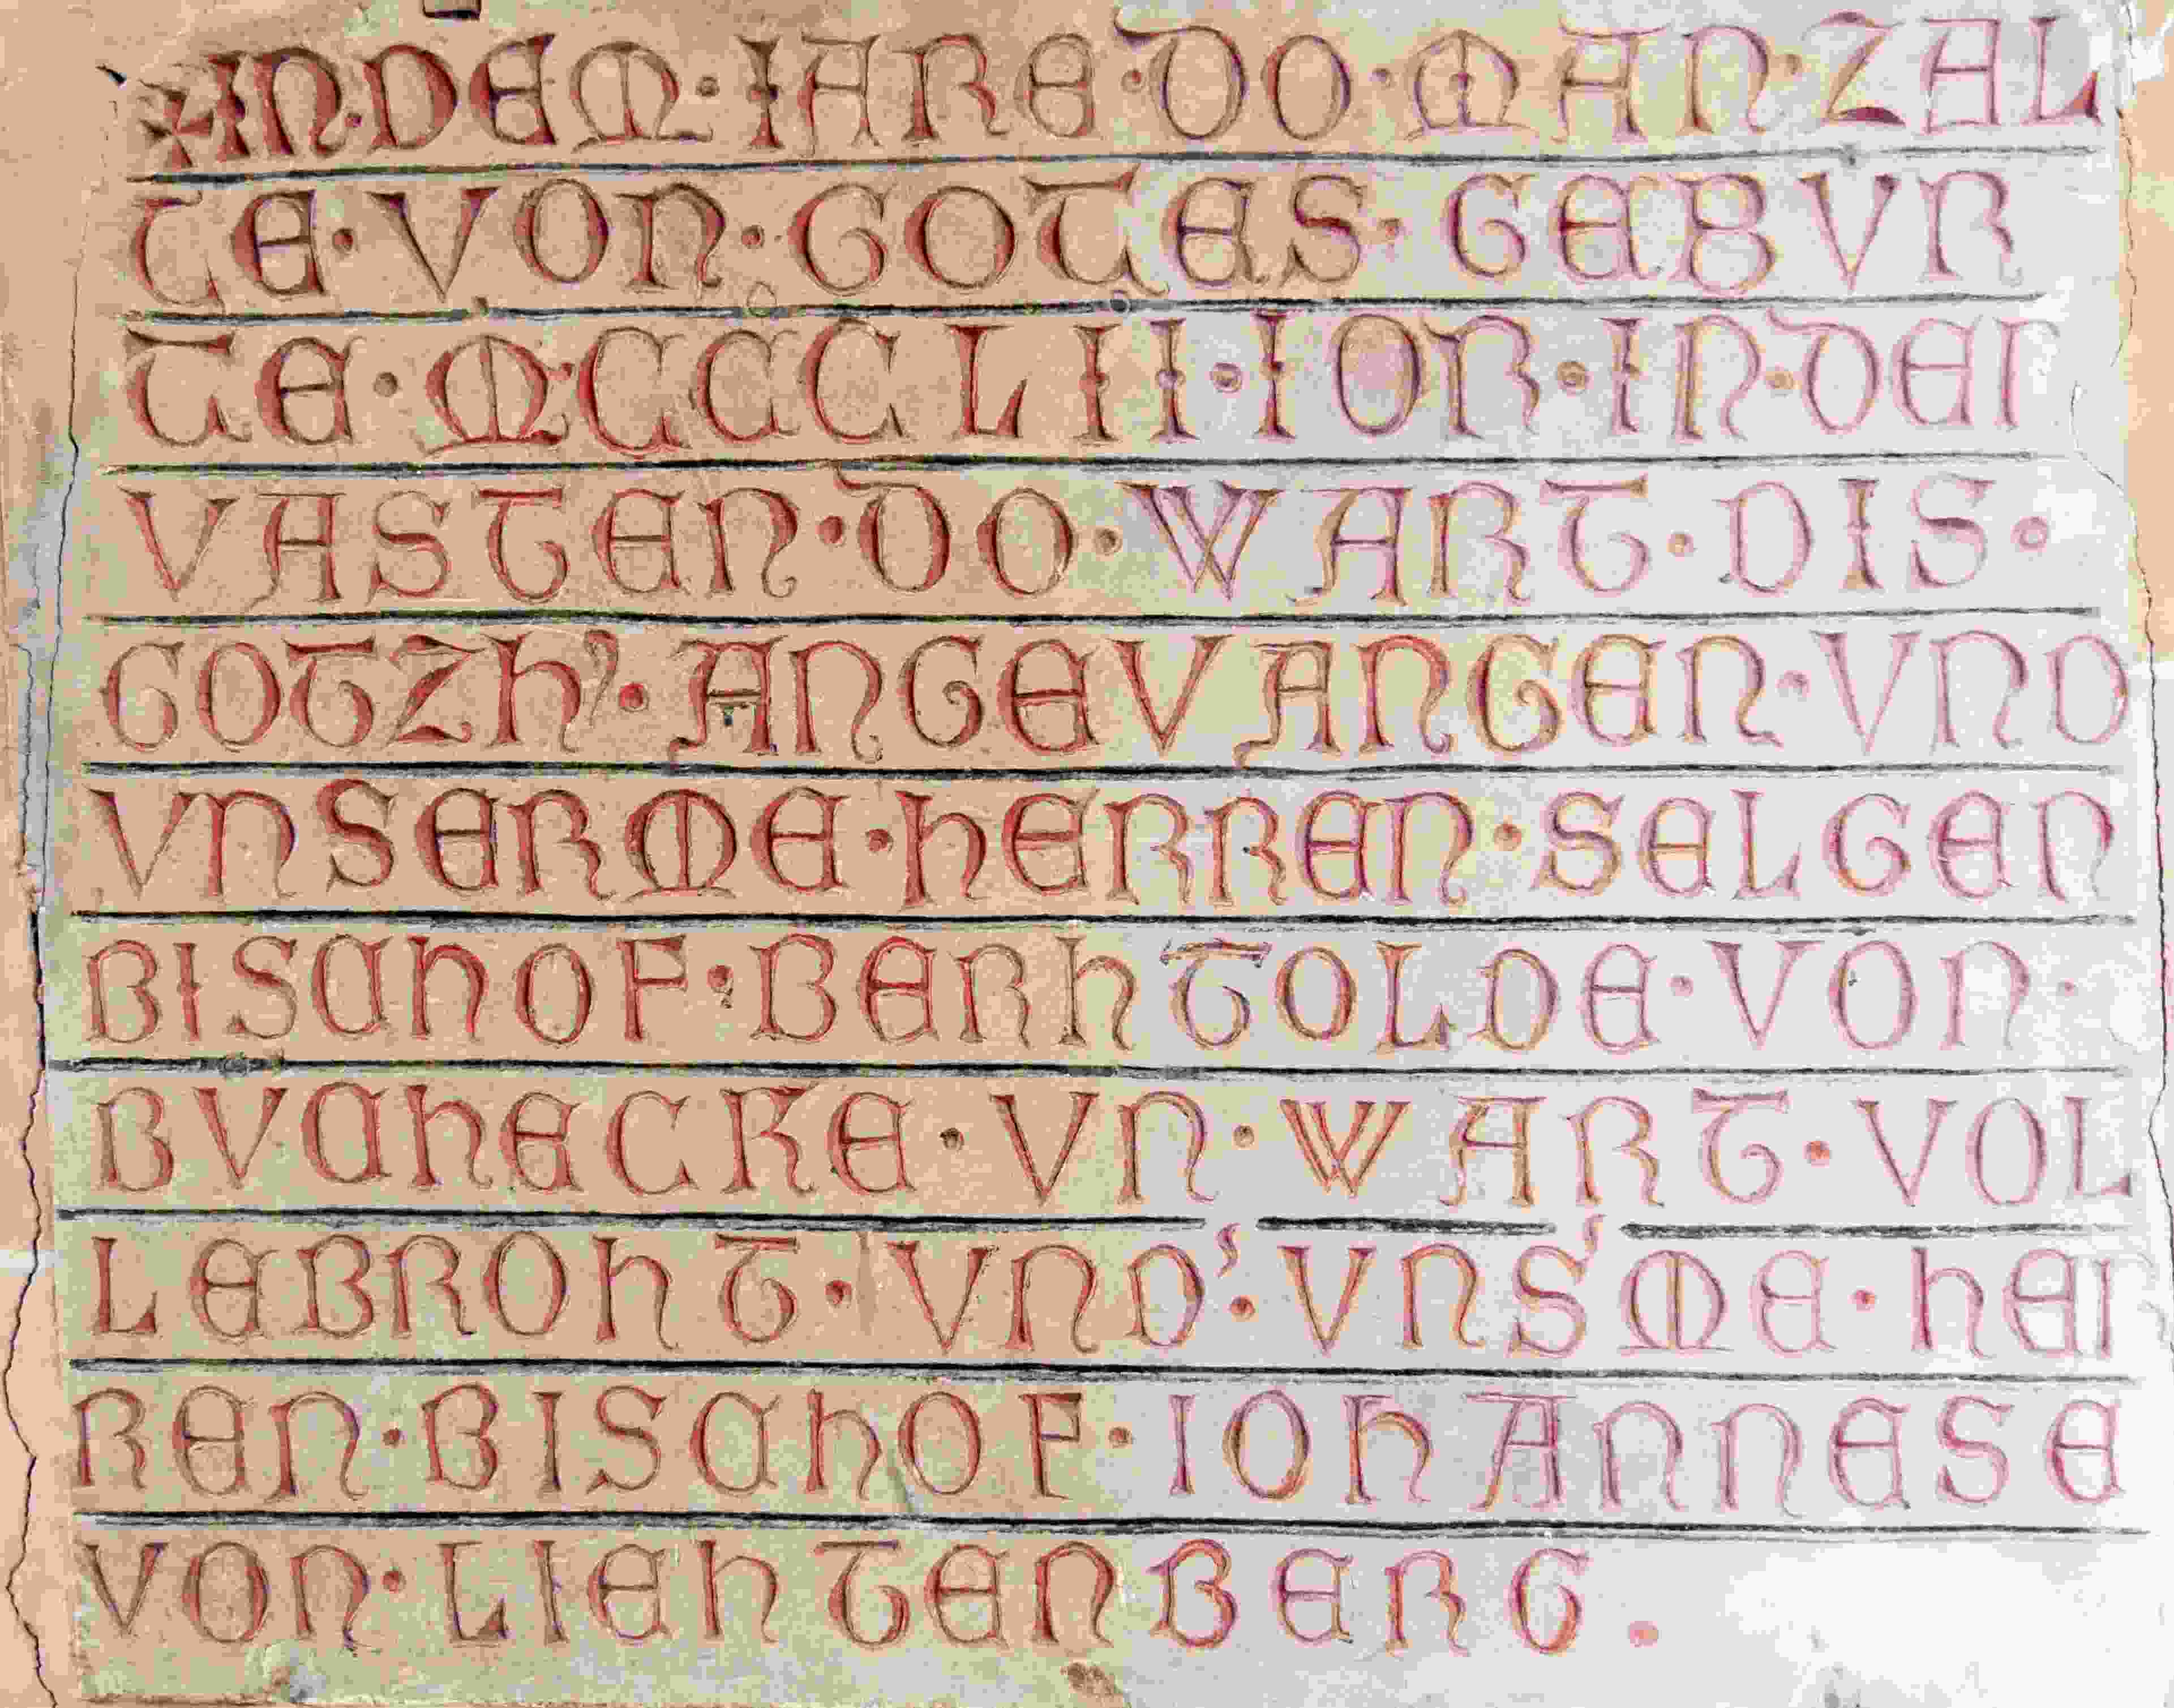 ✠IN·DEM·IARE·DO·MAN·ZAL
TE·VON·GOTES·GEBVR
TE·M·CCCLII·IOR·IN·DER
VASTEN·DO·WART·DIS·
GOTZH'·ANGEVANGEN·VND
VNSERME·HERREN·SELGEN
BISCHOF·BERHTOLDE·VON·
BVCHECKE·VN·WART·VOL
LEBROHT·VND'·VNS'ME·HER
REN·BISCHOF·IOHANNESE
VON·LIEHTENBERG.